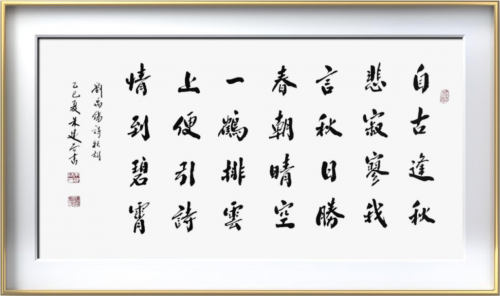 自古逢秋
悲寂寥我
言秋日勝
春朝晴空
一鶴排雲
上便引詩
情到碧霄
劉禹錫詩秋詞
乙巳夏書